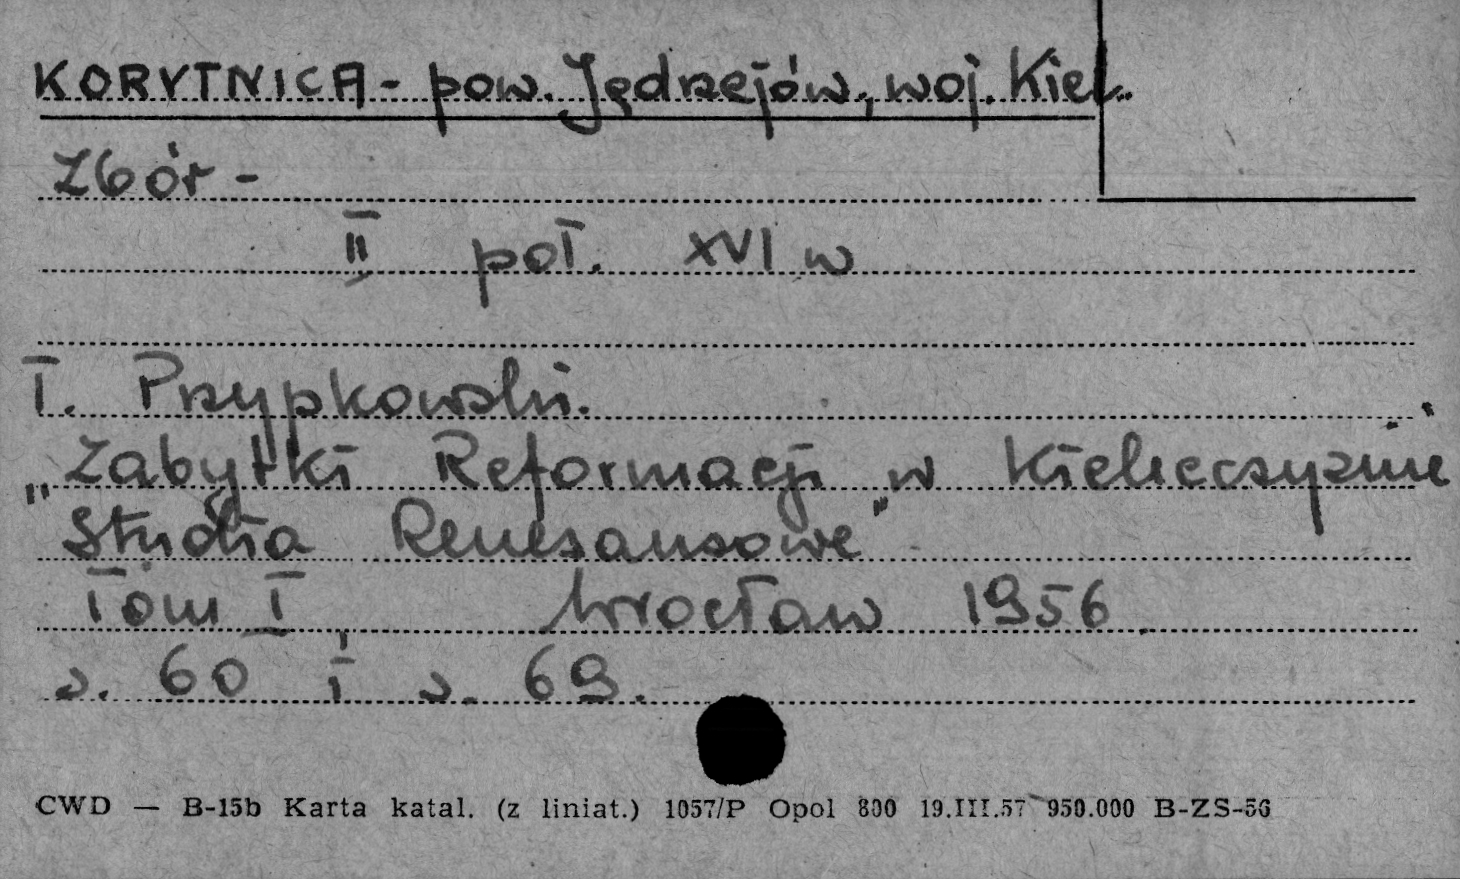 KORYTNICA - pow. Jędrzejów, woj. Kiel.
Zbór -
II poł. XVI w
T. Przypkowski.
"Zabytki Reformacji w Kielecczyźnie"
"Studia Renesansowe"
Tom I, Wrocław 1956
s. 60 i s. 69.
CWD — B-15b Karta katal. (z liniat.) 1057/P Opol 800 19.III.57 950.000 B-ZS-56